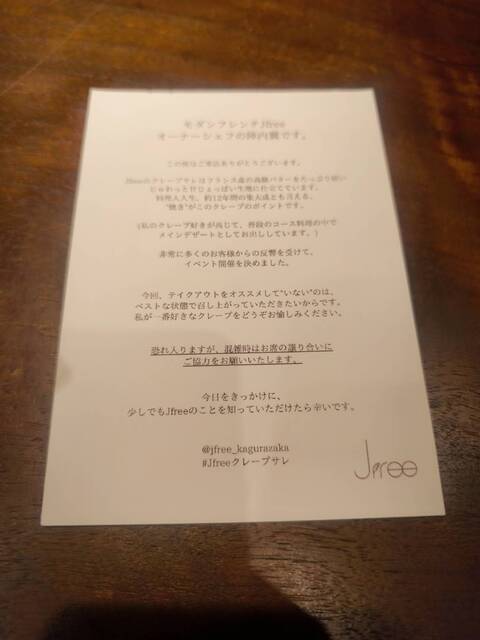 モダンフレンチJfree
オーナーシェフの陣内翼です。
この度はご来店ありがとうございます。
Jfreeのクレープサレはフランス産の高級バターをたっぷり使い
じゅわっと甘じょっぱい生地に仕立てています。
料理人人生、約12年間の集大成とも言える、
"焼き"がこのクレープのポイントです。
(私のクレープ好きが高じて、普段のコース料理の中で
メインデザートとしてお出ししています。)
非常に多くのお客様からの反響を受けて、
イベント開催を決めました。
今回、テイクアウトをオススメして"いない"のは、
ベストな状態で召し上がっていただきたいからです。
私が一番好きなクレープをどうぞお愉しみください。
恐れ入りますが、混雑時はお席の譲り合いに
ご協力をお願いいたします。
今日をきっかけに、
少しでもJfreeのことを知っていただけたら幸いです。
@jfree_kagurazaka
#Jfreeクレープサレ
Jfree